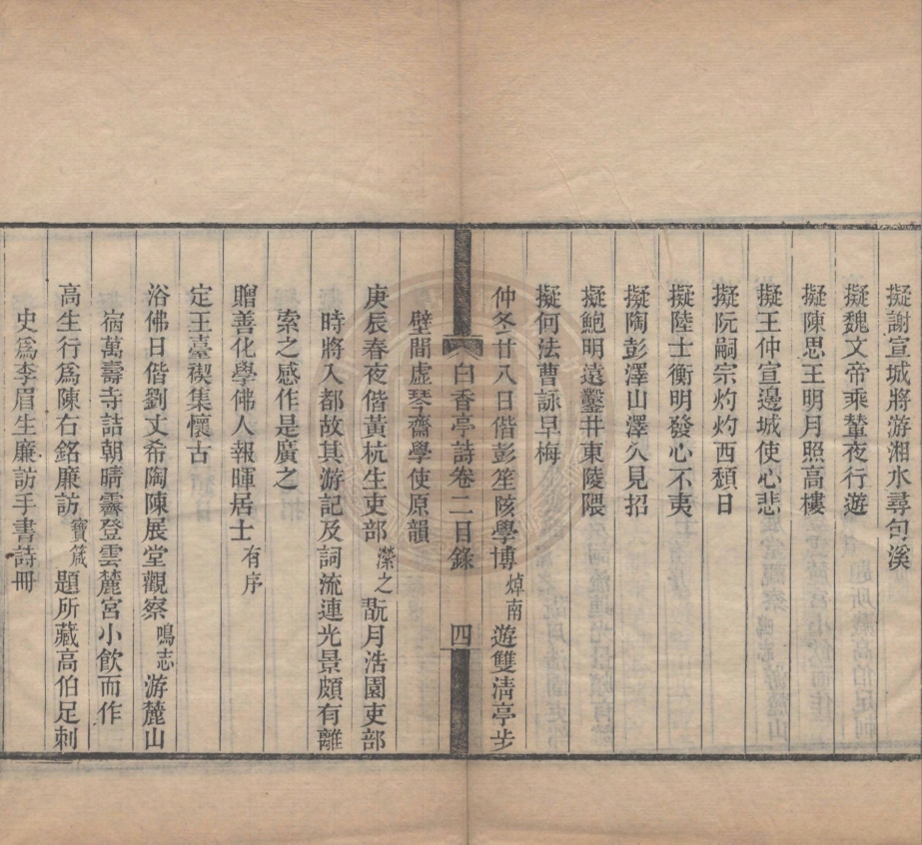 擬謝宣城將游湘水尋句溪
擬魏文帝乘輦夜行遊
擬陳思王明月照高樓
擬王仲宣邊城使心悲
擬阮嗣宗灼灼西頹日
擬陸士衡明發心不夷
擬陶彭澤山澤久見招
擬鮑明遠鑿井東陵隈
擬何法曹詠早梅
仲冬廿八日偕彭笙陔學博焯南遊雙清亭步
壁間虛琴齋學使原韻
白香亭詩卷二目錄 四
庚辰春夜偕黃杭生吏部濚之翫月浩園吏部
時將入都故其游記及詞流連光景頗有離
索之感作是廣之
贈善化學佛人報暉居士有序
定王臺禊集懷古
浴佛日偕劉丈希陶陳展堂觀察鳴志游麓山
宿萬壽寺詰朝晴霽登雲麓宮小飲而作
高生行為陳右銘廉訪寶箴題所藏高伯足刺
史為李眉生廉訪手書詩冊